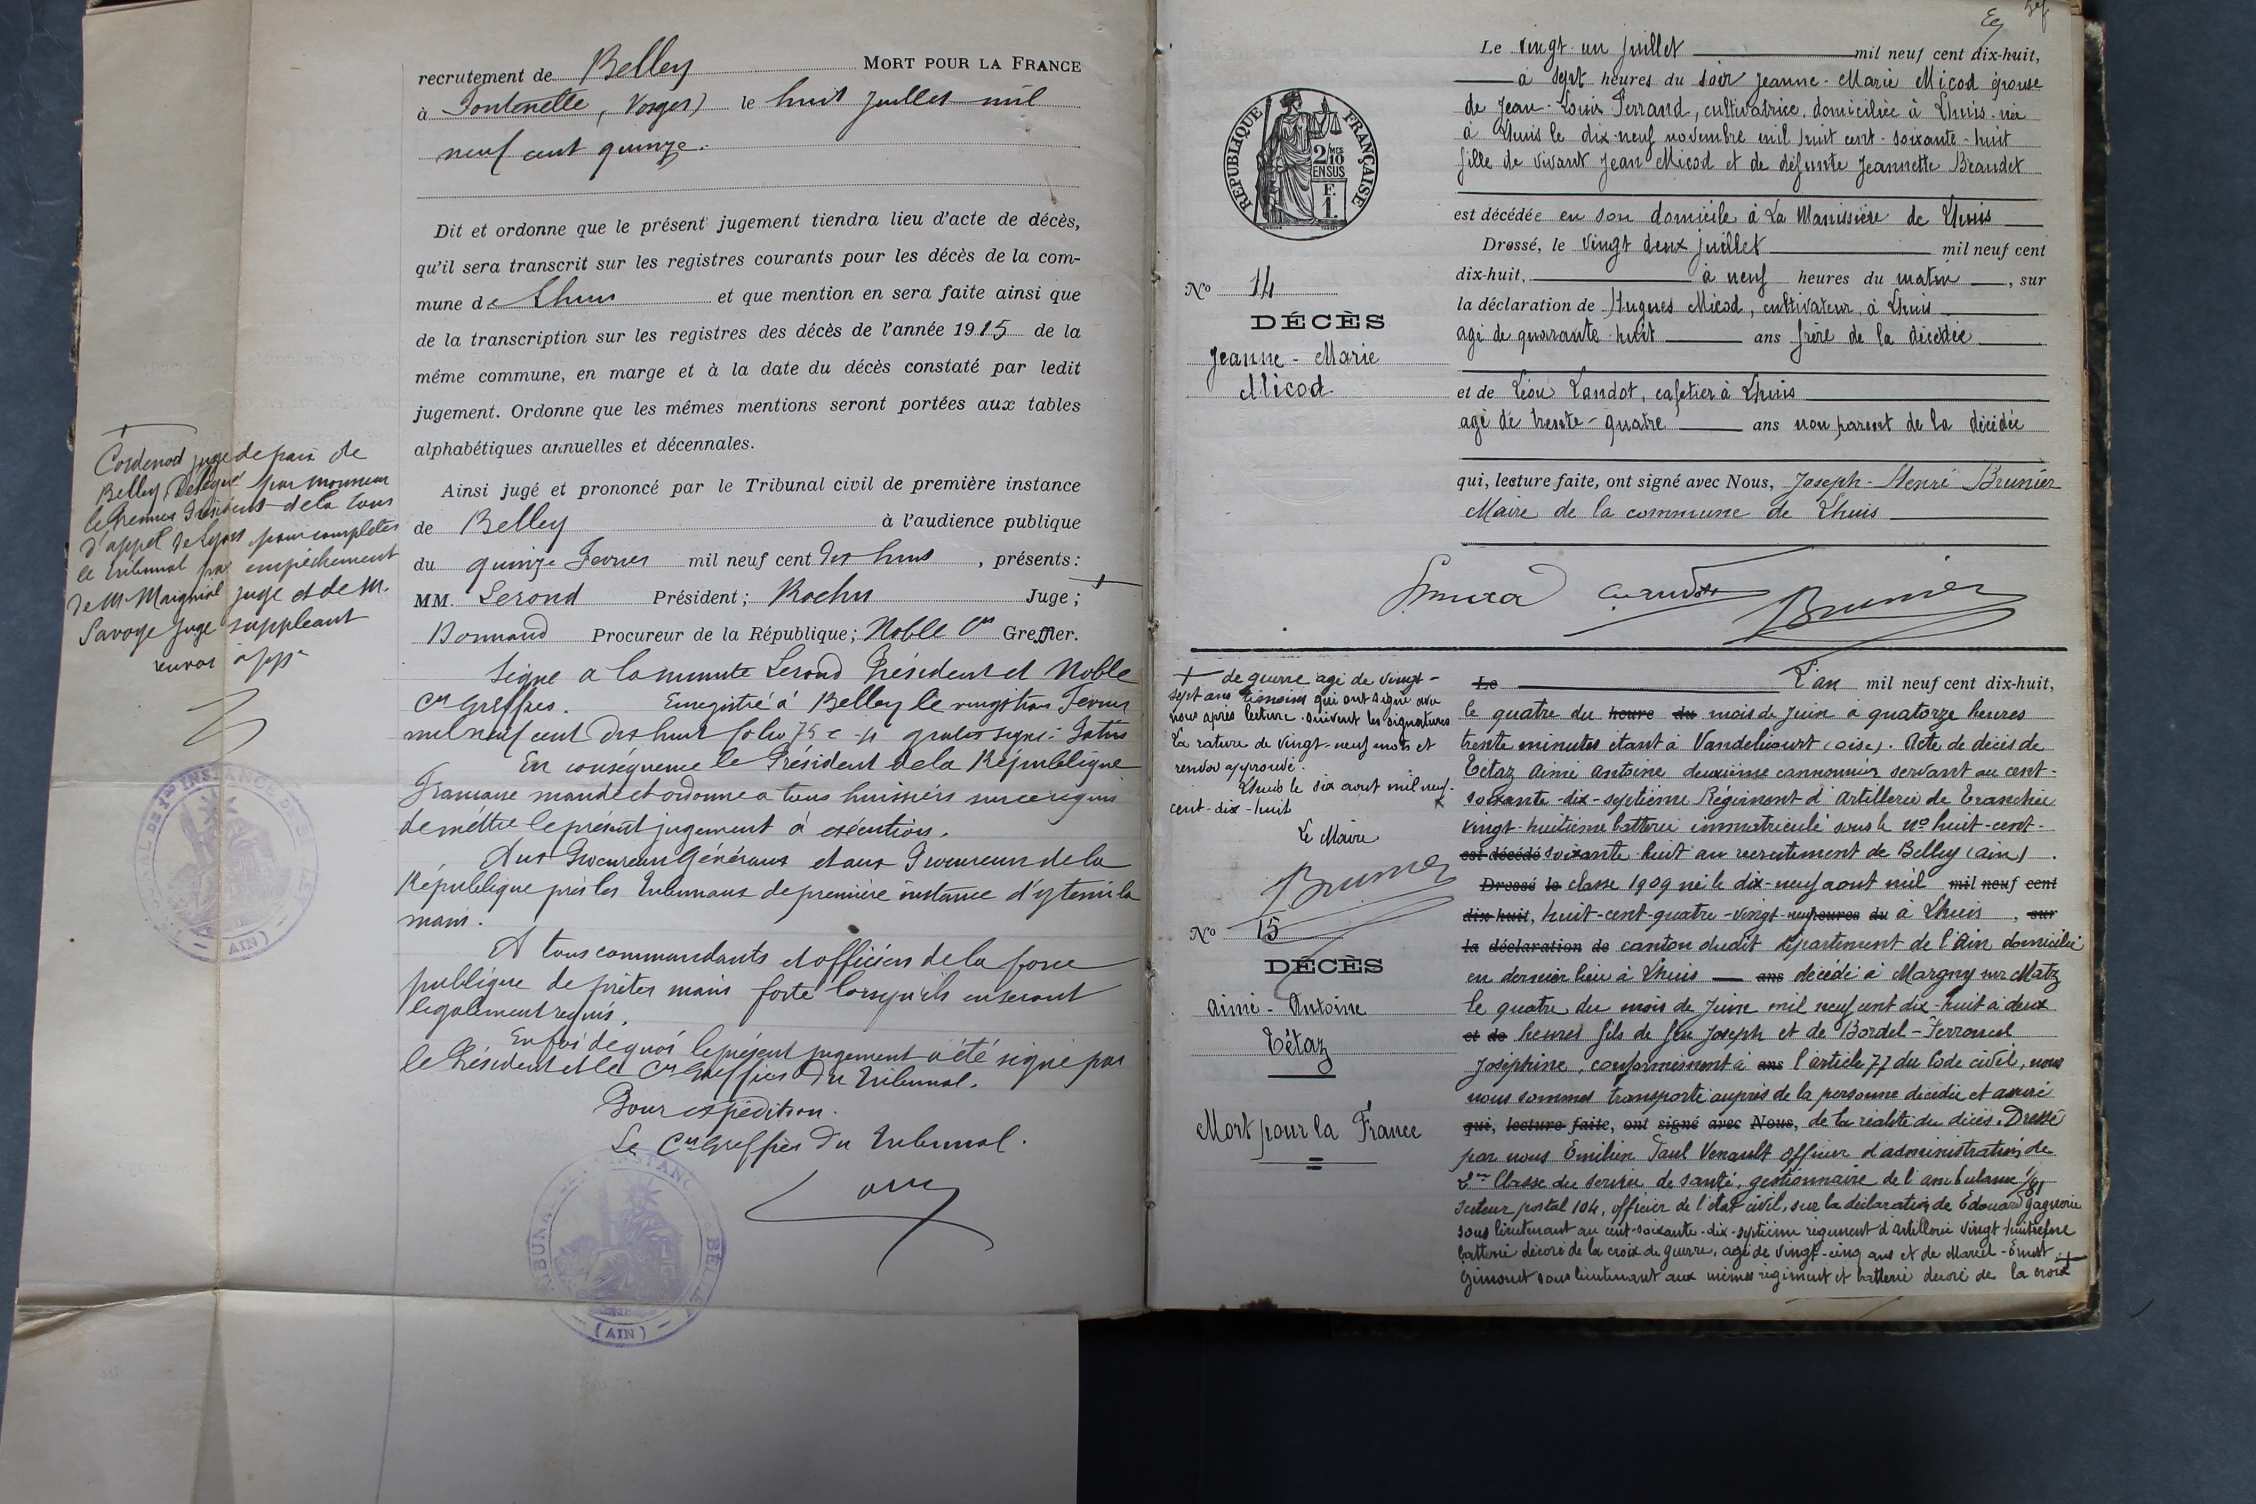 recrutement de Belley MORT POUR LA FRANCE
à Fontenelle, Vosges) le huit Juillet mil
neuf cent quinze.
Dit et ordonne que le présent jugement tiendra lieu d'acte de décès,
qu'il sera transcrit sur les registres courants pour les décès de la com-
mune de Lhuis et que mention en sera faite ainsi que
de la transcription sur les registres des décès de l'année 1915 de la
même commune, en marge et à la date du décès constaté par ledit
jugement. Ordonne que les mêmes mentions seront portées aux tables
alphabétiques annuelles et décennales.
Ainsi jugé et prononcé par le Tribunal civil de première instance
de Belley à l'audience publique
du quinze Fevrier mil neuf cent dix huit, présents :
MM. Lerond Président ; Rochu Juge ;
Bonnand Procureur de la République ; Noble Cis Greffier.
Signe a la minute Lerond Président et Noble
Cis Greffier. Enregistré à Belley le vingt trois Fevrier
mil neuf cent dix huit folio 75 c 11 gratis signé :
En conséquence le Président de la République
Française mande et ordonne a tous huissiers sur ce requis
de mettre le présent jugement à exécution.
Aux Procureurs Généraux et aux Procureurs de la
République près les Tribunaux de première instance d'y tenir la
main.
A tous commandants et officiers de la force
publique de prêter main forte lorsqu'ils en seront
legalement requis.
En foi de quoi le présent jugement a été signé par
le Président et le Cis Greffier du Tribunal.
Pour expédition.
Le Cis Greffier du Tribunal.
Cordenod juge de paix de
Belley, Délégué par monsieur
le Premier Président de la Cour
d'appel de Lyon pour compléter
le tribunal par empêchement
de M. Maigniol juge et de M.
Savoye juge suppleant
renvoi appé
AL DE 1ère INSTANCE DE BELLEY
(AIN)
TRIBUNAL DE 1ère INSTANCE DE BELLEY
(AIN)
Le vingt-un juillet mil neuf cent dix-huit,
à sept heures du soir Jeanne-Marie Micod épouse
de Jean-Louis Ferrand, cultivatrice, domiciliée à Lhuis née
à Lhuis le dix-neuf novembre mil huit cent-soixante-huit
fille de vivant Jean Micod et de défunte Jeannette Beaudet
est décédée en son domicile à La Manissière de Lhuis
Dressé, le vingt deux juillet mil neuf cent
dix-huit, à neuf heures du matin, sur
la déclaration de Hugues Micod, cultivateur, à Lhuis
agé de quarante-huit ans frère de la décédée
et de Léon Landot, cafetier à Lhuis
agé de trente-quatre ans non parent de la décédée
qui, lecture faite, ont signé avec Nous, Joseph-Henri Brunier
Maire de la commune de Lhuis
Brunier
RÉPUBLIQUE FRANÇAISE
2/10 MES
EN SUS
F.
1.
No 14
DÉCÈS
Jeanne-Marie
Micod
de guerre agé de vingt-
sept ans témoins qui ont signé avec
nous après lecture. suivent les signatures
La rature de vingt-neuf mots et
renvoi approuvé.
Lhuis le six aout mil neuf-
cent-dix-huit
Le Maire
Brunier
No 15
DÉCÈS
Aimé-Antoine
Tétaz
Mort pour la France
Le L'an mil neuf cent dix-huit,
le quatre du heure du mois de Juin a quatorze heures
trente minutes étant à Vandelicourt (oise). Acte de décès de
Tétaz Aimé Antoine deuxième cannonnier servant au cent-
soixante-dix-septième Régiment d'Artillerie de Tranchée
vingt-huitième batterie immatriculé sous le no huit-cent-
est décédé soixante-huit au recrutement de Belley (ain).
Dressé le classe 1909 né le dix-neuf aout mil mil neuf cent
dix-huit, huit-cent-quatre-vingt-neuf heures du à Lhuis, sur
la déclaration de canton dudit département de l'Ain domicilié
en dernier lieu à Lhuis ans décédé à Margny sur Matz
le quatre du mois de Juin mil neuf cent dix-huit à deux
et de heures fils de feu Joseph et de Bordel-Ferroud
Joséphine, conformément à ans l'article 77 du Code civil, nous
nous sommes transporté auprès de la personne décédée et assuré
qui, lecture faite, ont signé avec Nous, de la réalité du décès. Dressé
par nous Emilien Paul Venault Officier d'administration de
2me Classe du service de santé, gestionnaire de l'ambulance 1/81
secteur postal 104, officier de l'état civil, sur la déclaration de Edouard Gagnerie
sous lieutenant au cent-soixante-dix-septième régiment d'Artillerie vingt-huitième
batterie décoré de la croix de guerre, agé de vingt-cinq ans et de Marcel-Ernest
Gimonet sous lieutenant aux mêmes régiment et batterie décoré de la croix